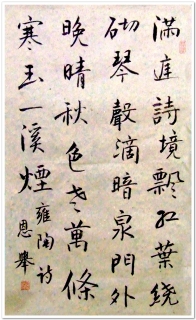 滿庭詩境飄紅葉繞
砌琴聲滴暗泉門外
晚晴秋色老萬條
寒玉一溪煙 雍陶詩
恩舉